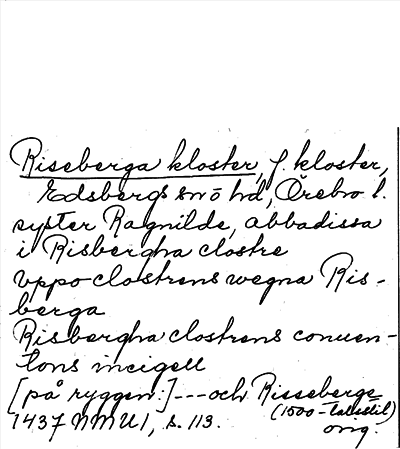 Riseberga kloster, f. kloster,
Edsbergs sn ö hd, Örebro l.
syster Ragnilde, abbadissa
i Risbergha clostre
vppo clostrens wegna Ris-
berga
Risbergha clostrens conuen-
tons incigell
[på ryggen:] --- och Risseberge
(1500-talsstil)
1437 NMU1, s. 113. orig.